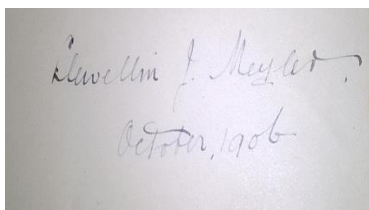 Llewellin J. Meyler.
October, 1906